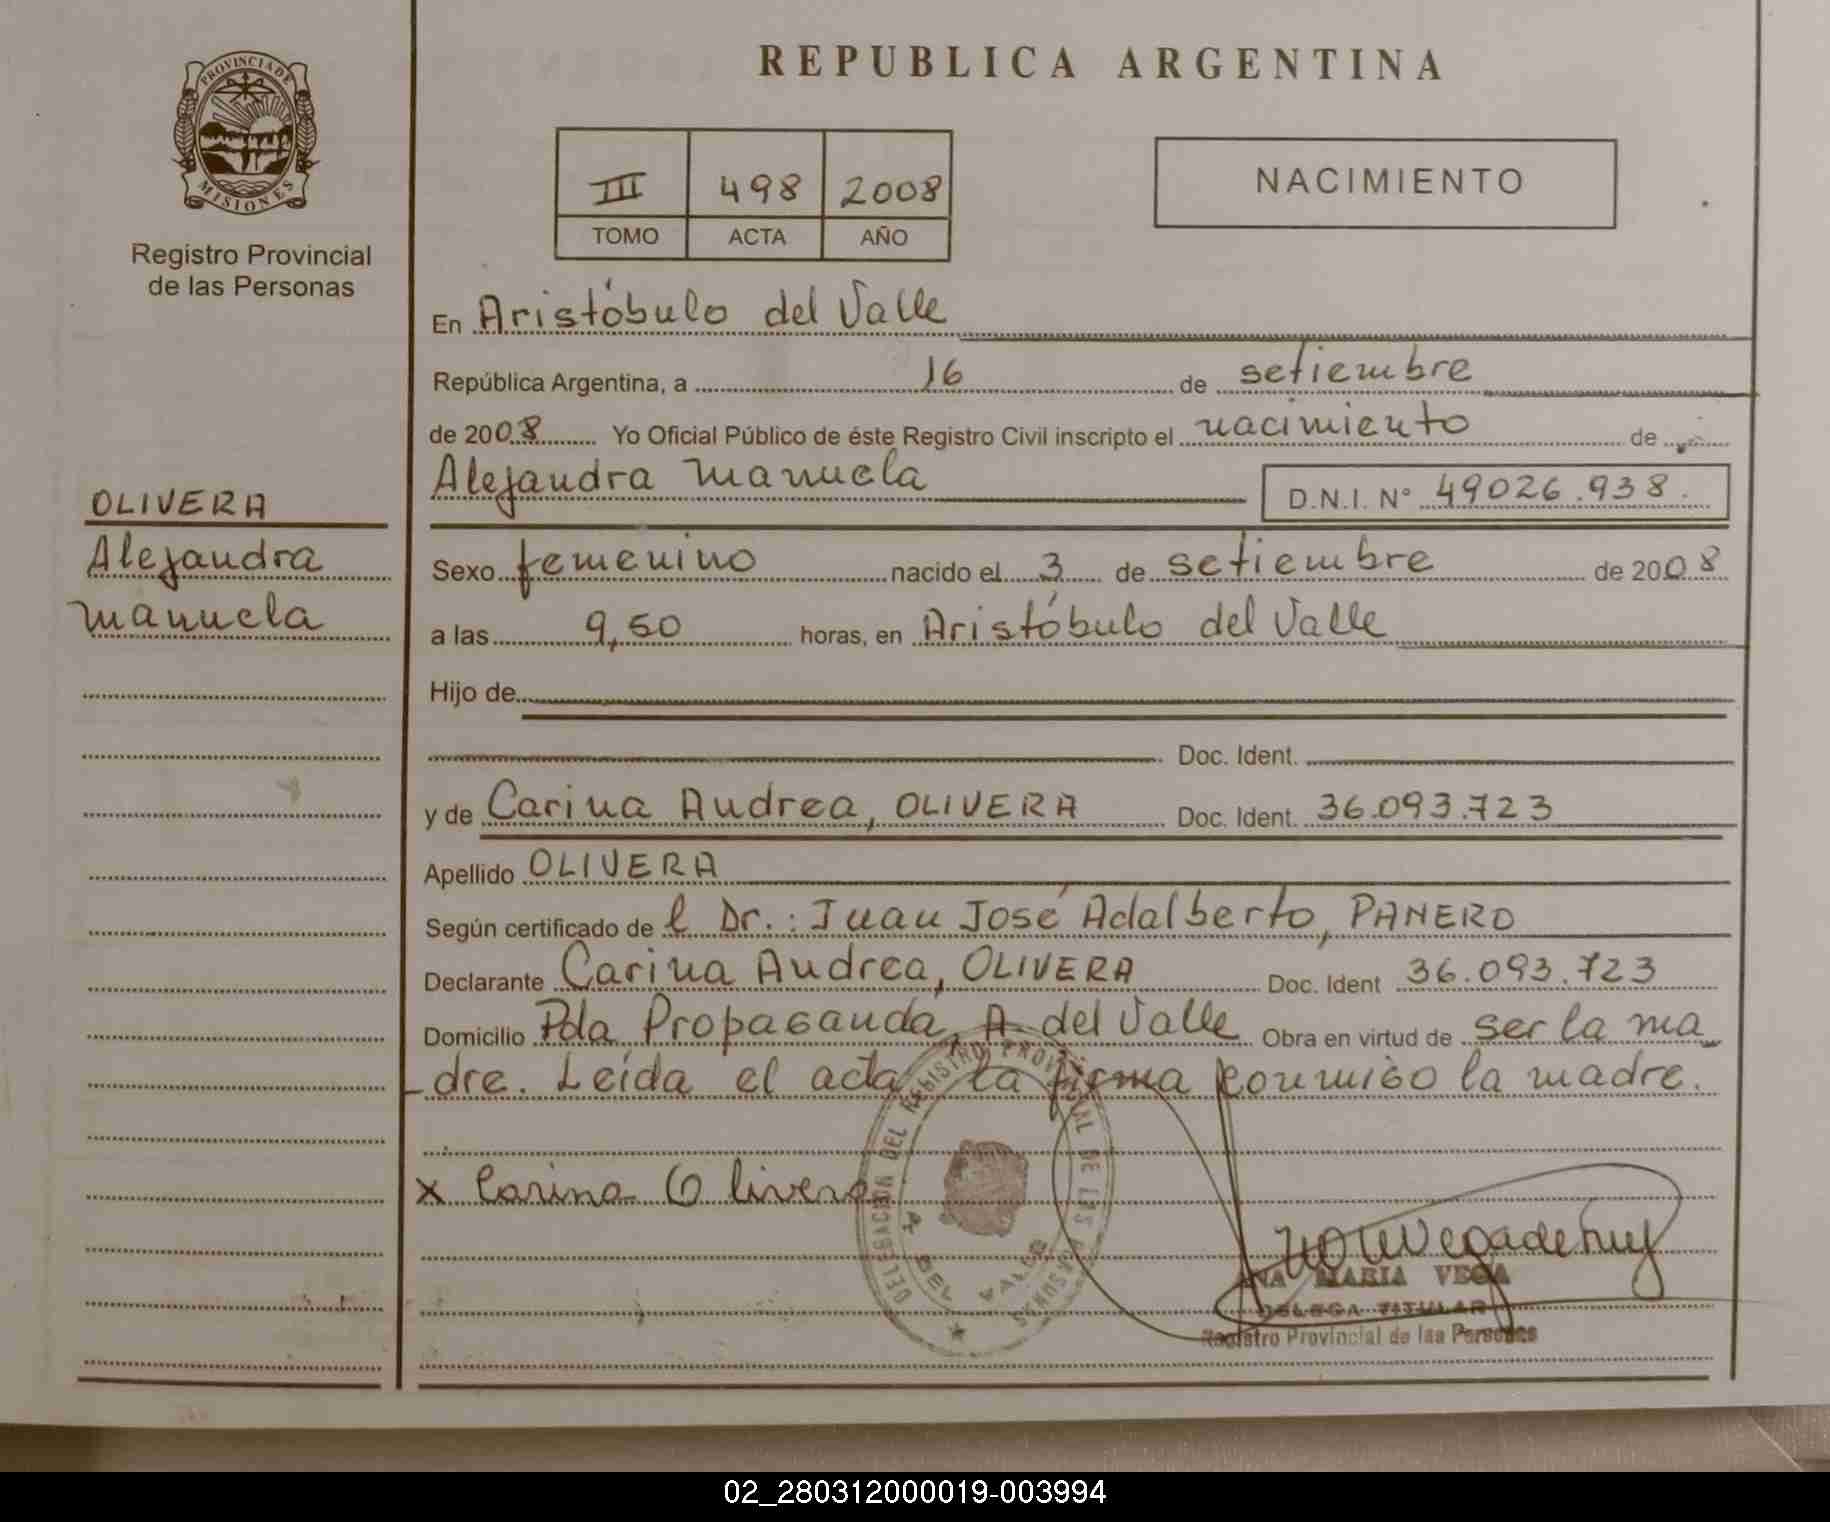 REPUBLICA ARGENTINA
PROVINCIA DE
MISIONES
Registro Provincial
de las Personas
III 498 2008
TOMO ACTA AÑO
NACIMIENTO
En Aristóbulo del Valle
República Argentina, a 16 de setiembre
de 2008 Yo Oficial Público de éste Registro Civil inscripto el nacimiento de
Alejandra Manuela D.N.I. N° 49026.938.
OLIVERA
Alejandra
Manuela
Sexo femenino nacido el 3 de setiembre de 2008
a las 9,50 horas, en Aristóbulo del Valle
Hijo de
Doc. Ident.
y de Carina Andrea, OLIVERA Doc. Ident. 36.093.723
Apellido OLIVERA
Según certificado de l Dr.: Juan José Adalberto, PANERO
Declarante Carina Andrea, OLIVERA Doc. Ident 36.093.723
Domicilio Pda Propaganda, A. del Valle Obra en virtud de ser la ma
dre. Leída el acta la firma conmigo la madre.
x Carina Olivera
DELEGACION DEL REGISTRO PROVINCIAL DE LAS PERSONAS
A. DEL VALLE
ANA MARIA VEGA
DELEGA TITULAR
Registro Provincial de las Personas
02_280312000019-003994